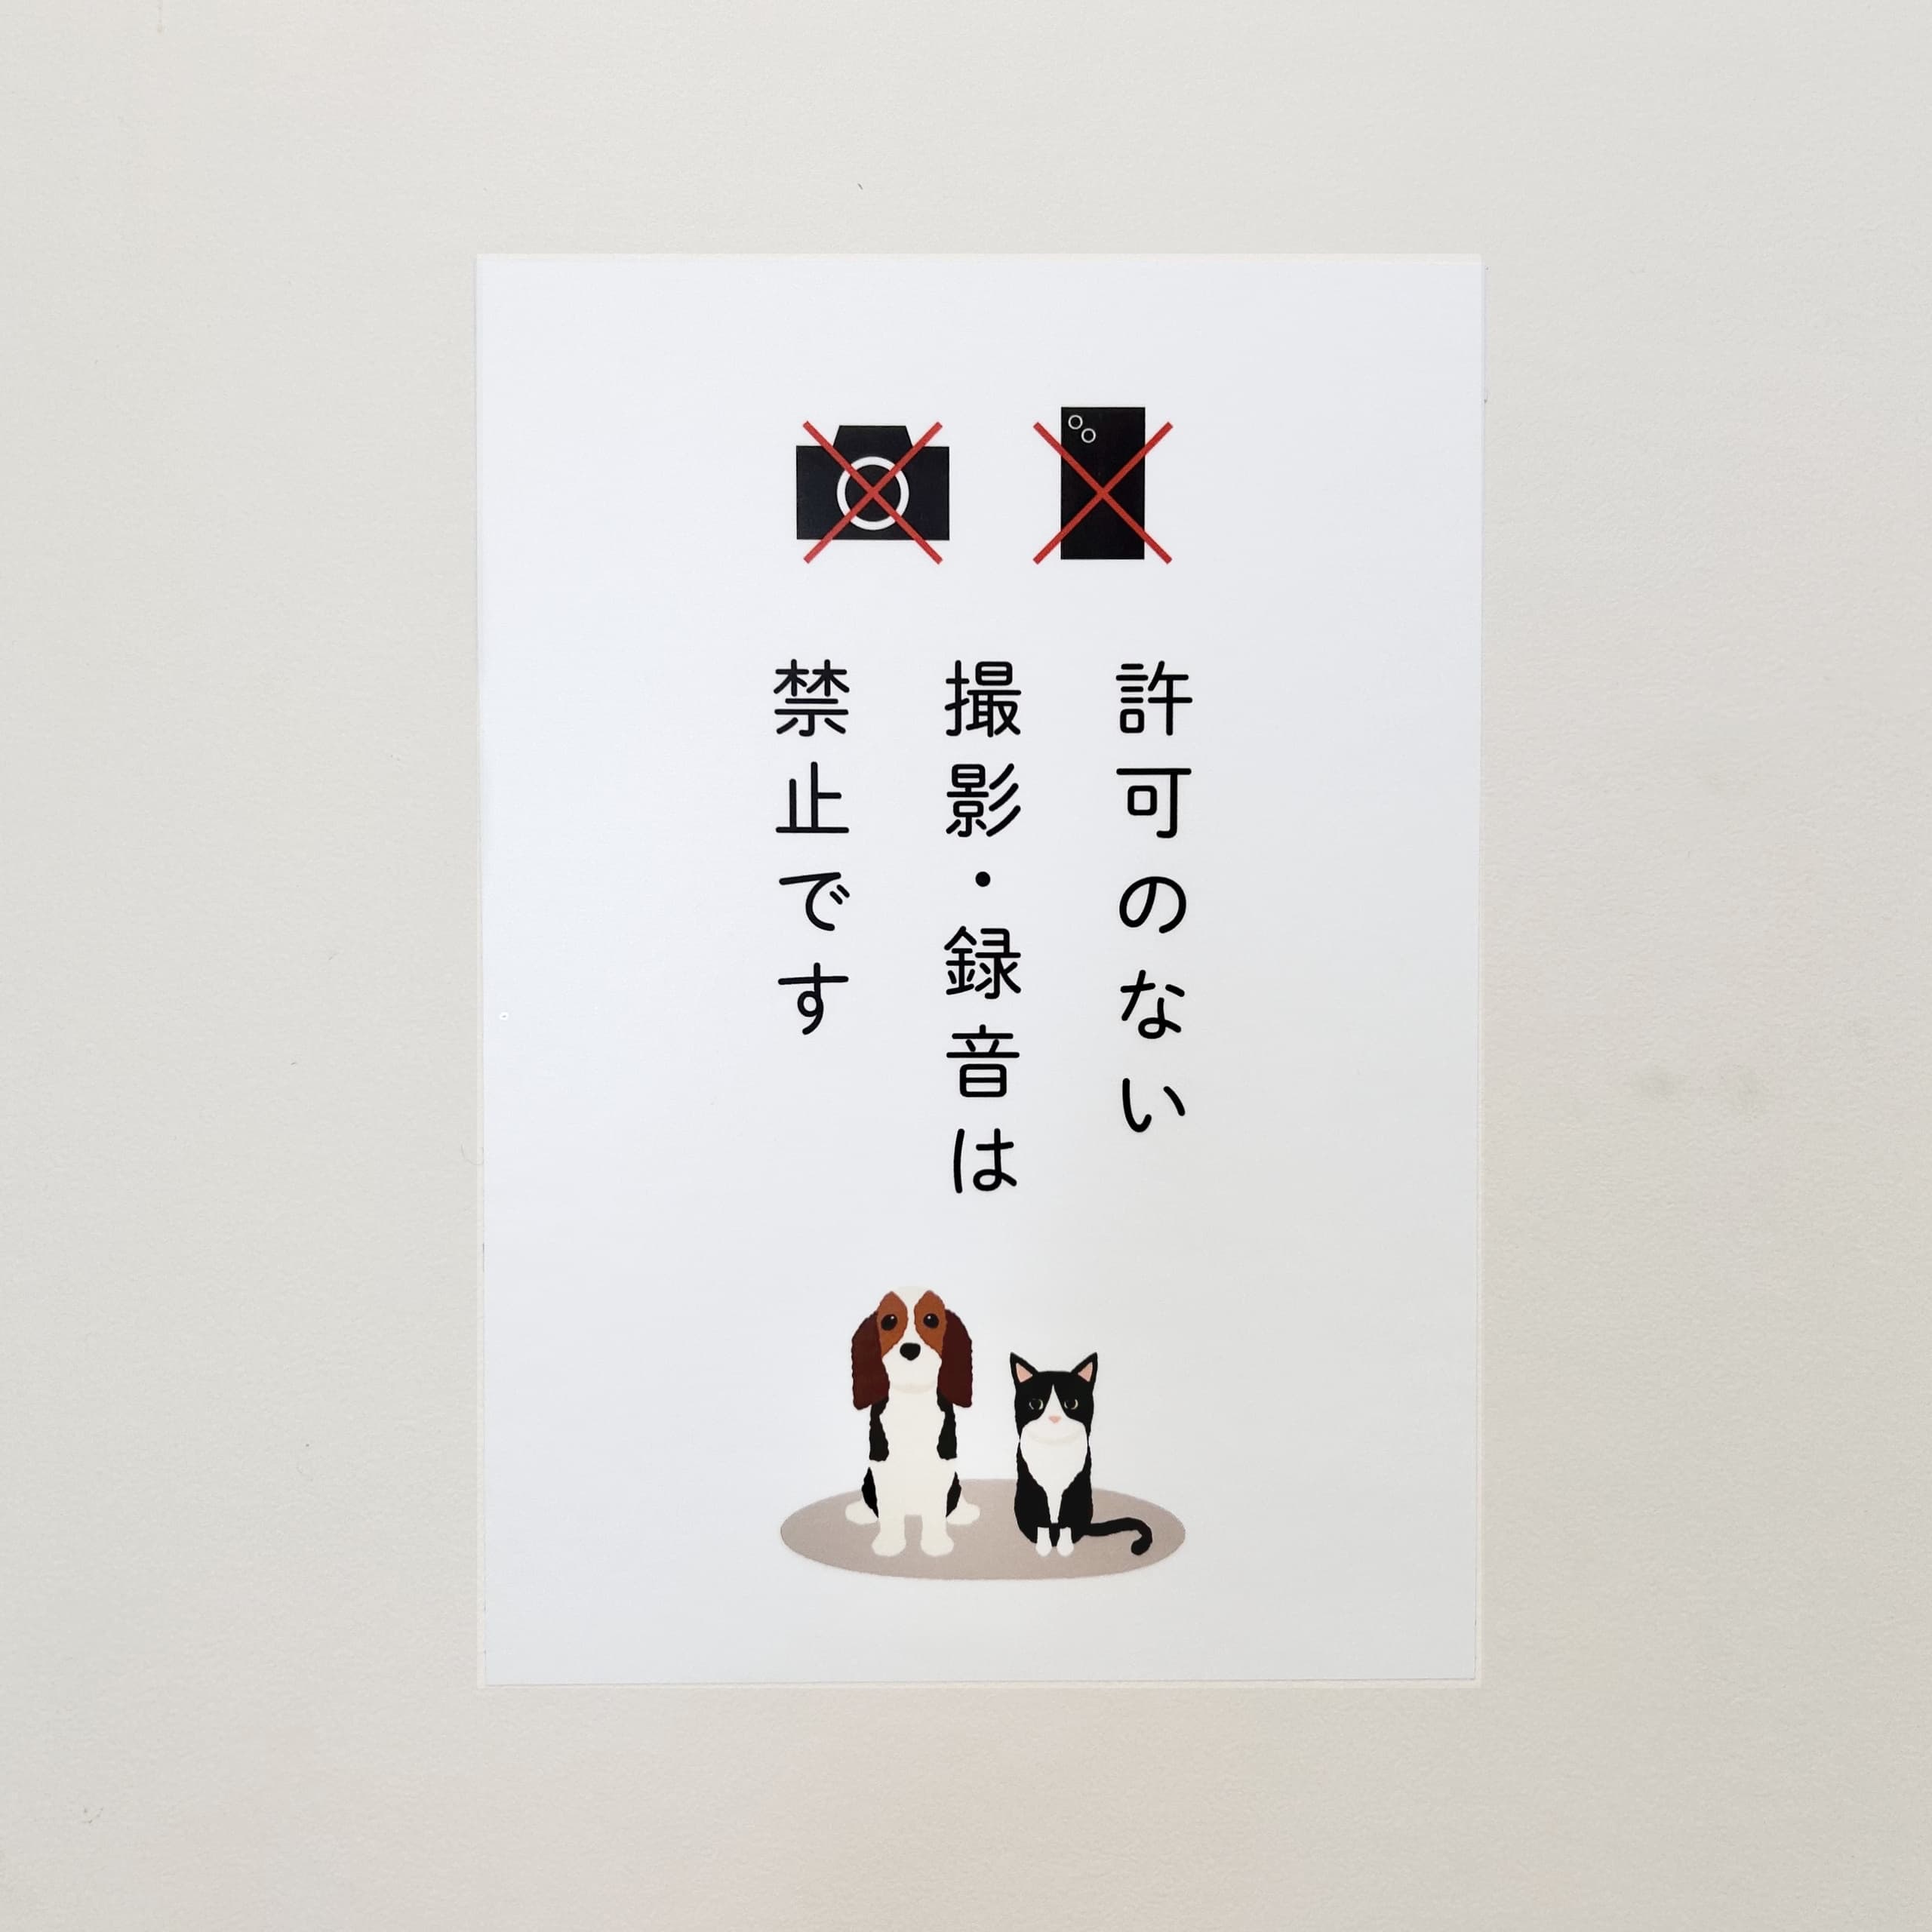 許可のない
撮影・録音は
禁止です